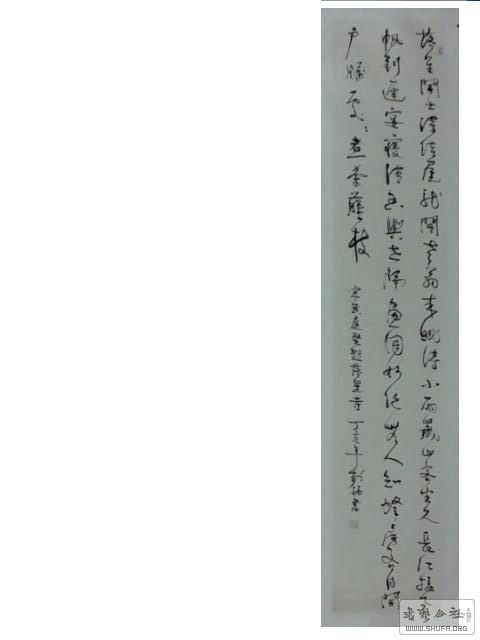 落星開士深結屋龍閣老翁來賦詩小雨藏山客坐久長江接天
帆到遲宴寢清香與世隔畫圖妙絕無人知蜂房各自開
戶牖處處煮茶藤一枝
宋黃庭堅題落星寺 丁亥年 書
書藝公社
WWW.SHUFA.ORG